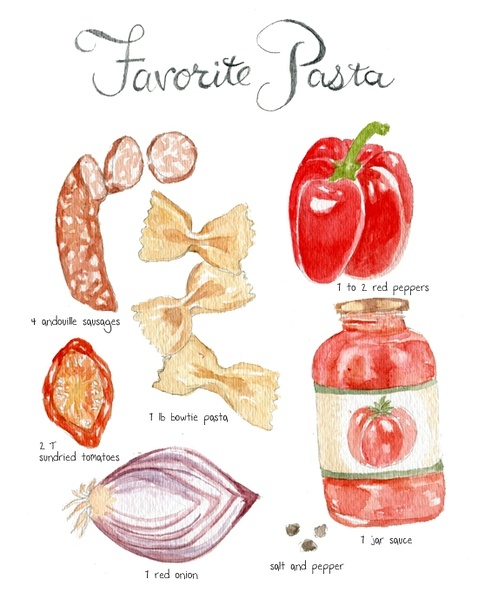 Favorite Pasta
4 andouille sausages
1 to 2 red peppers
1 lb bowtie pasta
2 T
sundried tomatoes
1 jar sauce
salt and pepper
1 red onion